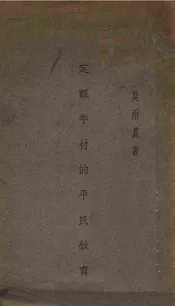 吳雨農著
定縣牛村的平民教育